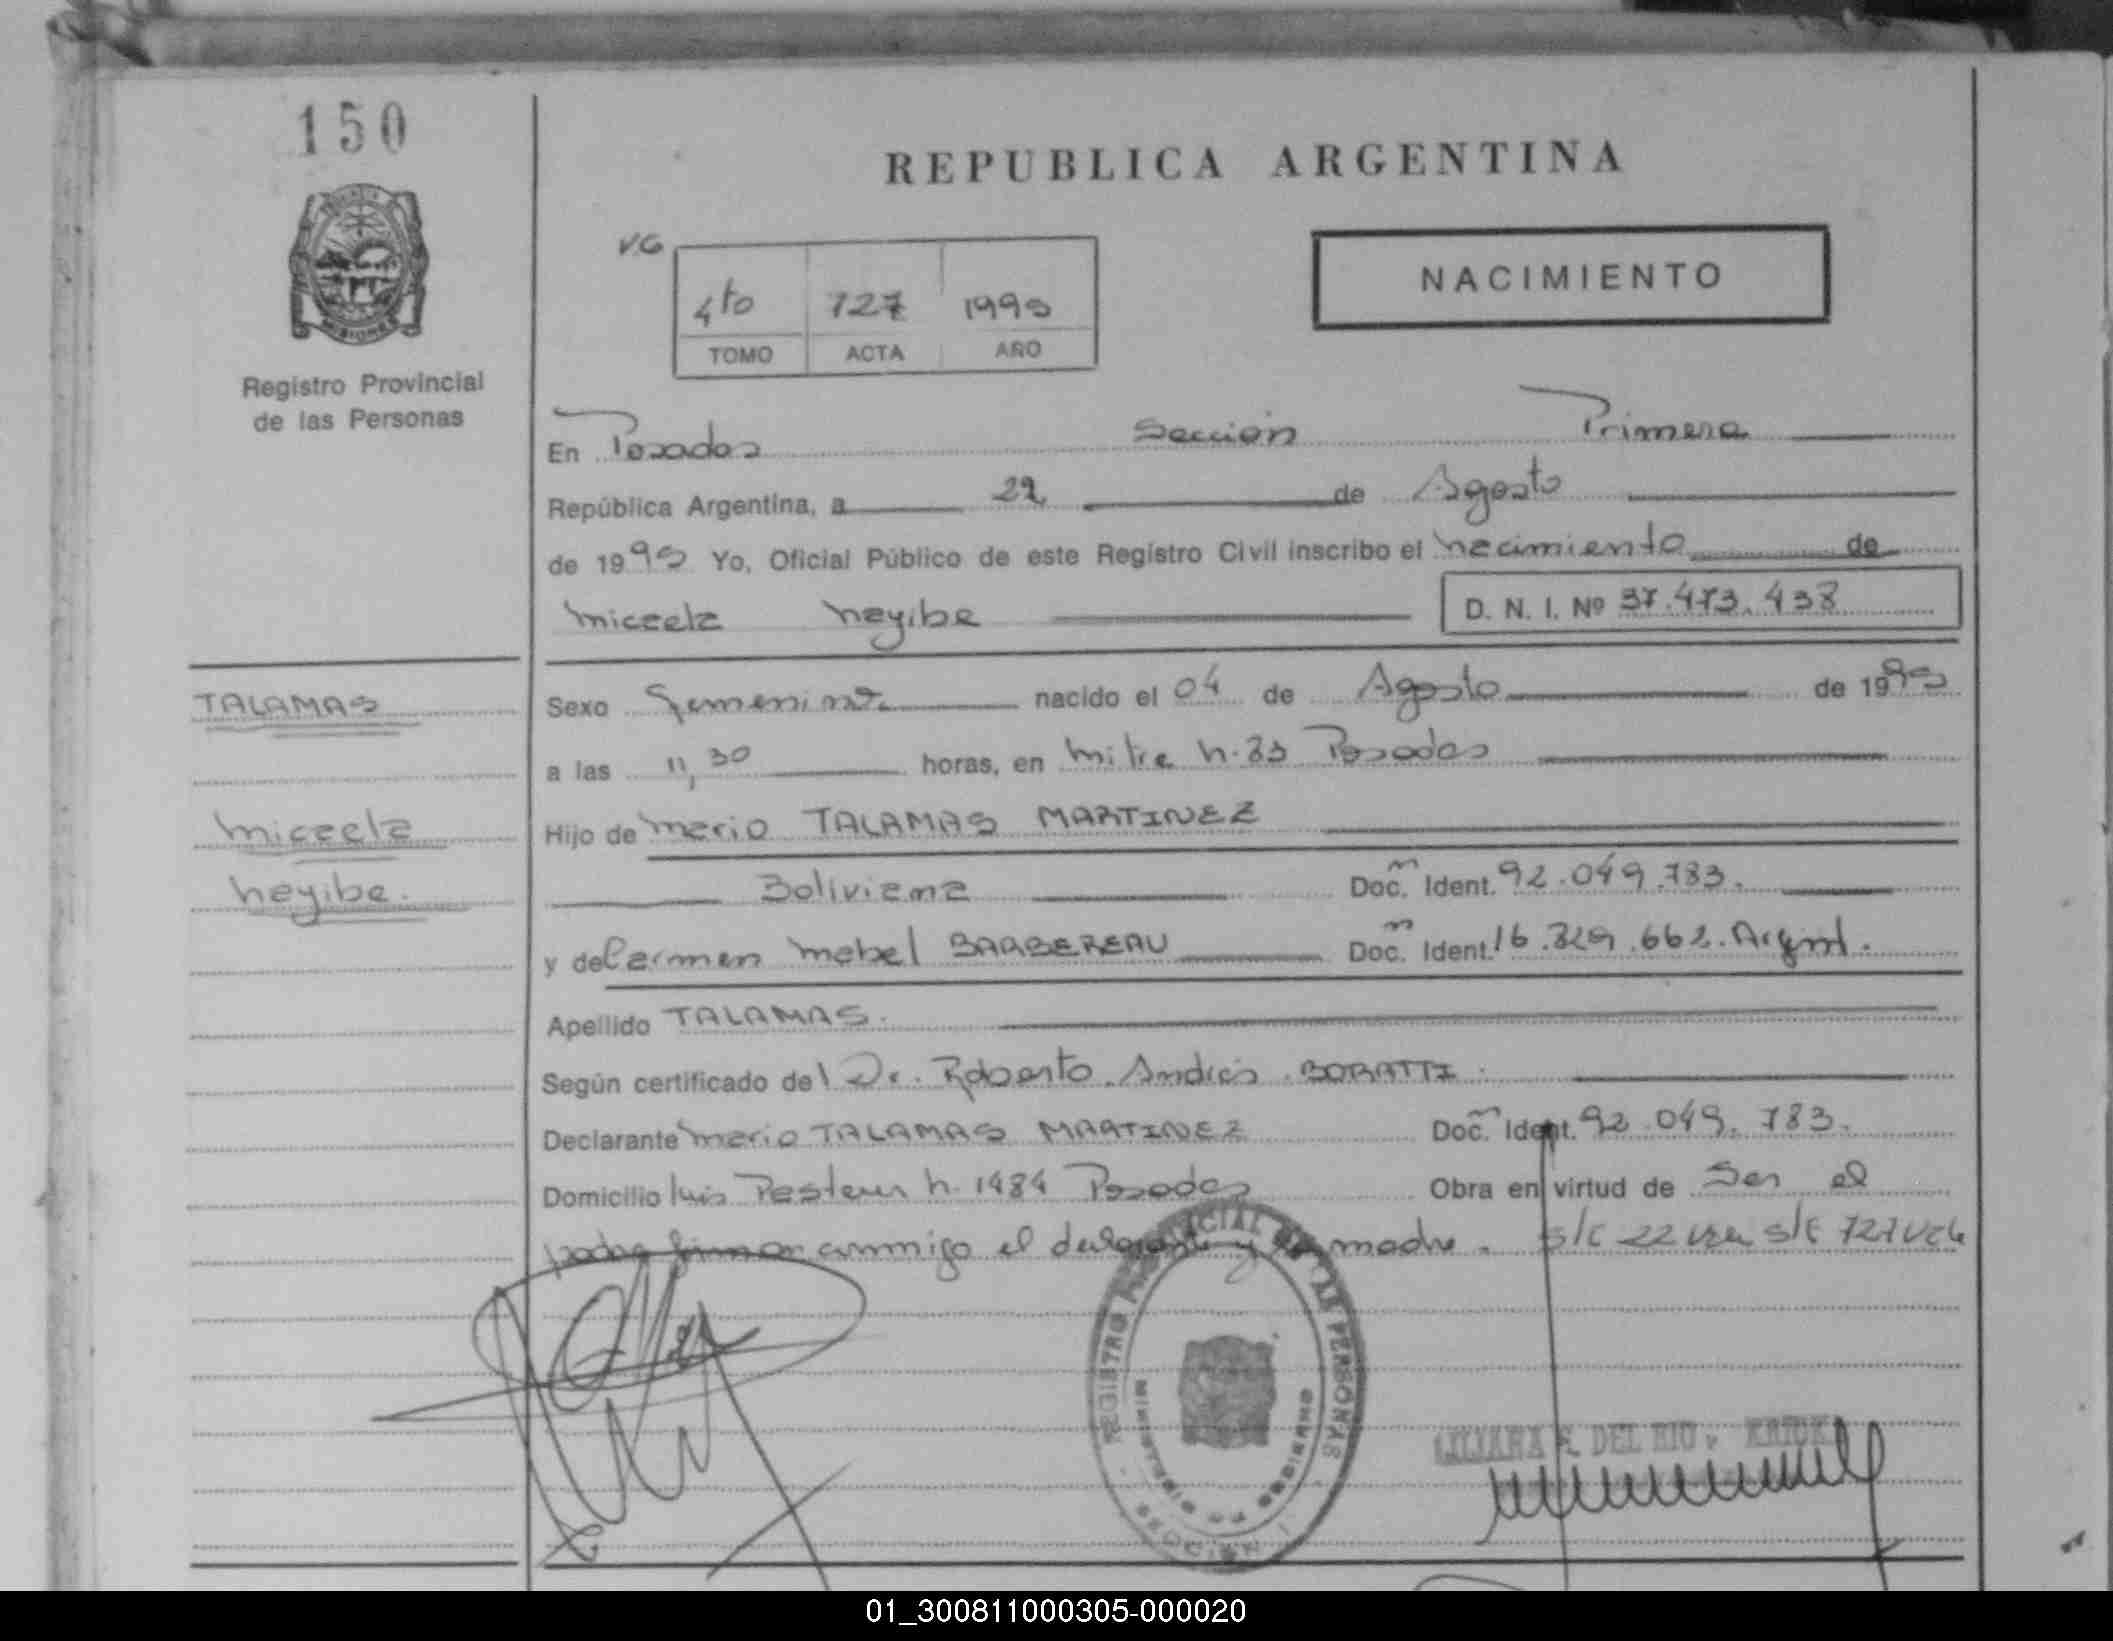 150
REPUBLICA ARGENTINA
V.G
NACIMIENTO
4to 727 1993
TOMO ACTA AÑO
MISIONES
Registro Provincial
de las Personas
En Posadas Sección Primera
República Argentina, a 22 de Agosto
de 1993 Yo, Oficial Público de este Registro Civil inscribo el nacimiento de
micaela nayibe D. N. I. Nº 37.473.438
TALAMAS
micaela
nayibe.
Sexo femenino nacido el 04 de Agosto de 1993
a las 11,30 horas, en mitre n. 23 Posadas
Hijo de mario TALAMAS MARTINEZ
Boliviana Doc. Ident. 92.049.783.
y de Carmen mabel BARBEREAU Doc. Ident. 16.829.662. Argent.
Apellido TALAMAS.
Según certificado del Dr. Roberto Andrés BORATTI.
Declarante mario TALAMAS MARTINEZ Doc. Ident. 92.049.783.
Domicilio luis Pasteur n. 1484 Posadas Obra en virtud de Ser el
padre firman conmigo el declarante y la madre. s/c 22 vale s/c 727 vale
REGISTRO PROVINCIAL DE LAS PERSONAS
MINISTERIO DE GOBIERNO
SECCION 1
LILIANA DEL RIO
01_300811000305-000020